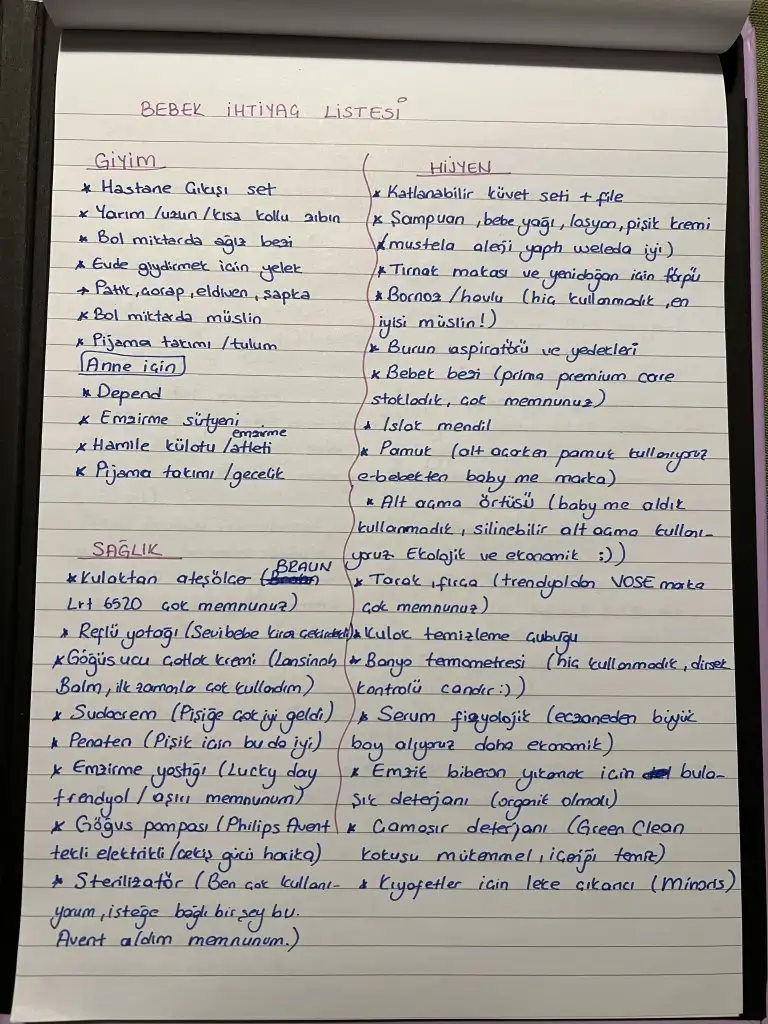 BEBEK İHTİYAÇ LİSTESİ
GİYİM
* Hastane Çıkışı set
* Yarım /uzun /kısa kollu zıbın
* Bol miktarda ağız bezi
* Evde giydirmek için yelek
* Patik, çorap, eldiven, şapka
* Bol miktarda müslin
* Pijama takımı /tulum
Anne için
* Depend
* Emzirme sütyeni
* Hamile külotu /emzirme atleti
* Pijama takımı /gecelik
SAĞLIK
* Kulaktan ateşölçer (BRAUN
Lrt 6520 çok memnunuz)
* Reflü yatağı (Sevibebe kira
* Göğüs ucu çatlak kremi (Lansinoh
Balm, ilk zamanla çok kulladım)
* Sudocrem (Pişiğe çok iyi geldi)
* Penaten (Pişik için bu da iyi)
* Emzirme yastığı (Lucky day
trendyol / aşırı memnunum)
* Göğüs pompası (Philips Avent
tekli elektrikli /çekiş gücü harika)
* Sterilizatör (Ben çok kullanı-
yorum, isteğe bağlı bir şey bu.
Avent aldım memnunum.)
HİJYEN
* Katlanabilir küvet seti + file
* Şampuan, bebe yağı, losyon, pişik kremi
(mustela alerji yaptı weleda iyi)
* Tırnak makası ve yenidoğan için törpü
* Bornoz /havlu (hiç kullanmadık, en
iyisi müslin!)
* Burun aspiratörü ve yedekleri
* Bebek bezi (prima premium care
stokladık, çok memnunuz)
* Islak mendil
* Pamuk (alt açarken pamuk kullanıyoruz
e-bebekten baby me marka)
* Alt açma örtüsü (baby me aldık
kullanmadık, silinebilir alt açma kullanı-
yoruz Ekolojik ve ekonomik :))
* Tarak, fırça (trendyoldan VOSE marka
çok memnunuz)
* Kulak temizleme çubuğu
* Banyo termometresi (hiç kullanmadık, dirsek
kontrolü candır :))
* Serum fizyolojik (eczaneden büyük
boy alıyoruz daha ekonomik)
* Emzik biberon yıkamak için bula-
şık deterjanı (organik olmalı)
* Çamaşır deterjanı (Green Clean
kokusu mükemmel, içeriği temiz)
* Kıyafetler için leke çıkarıcı (Minoris)